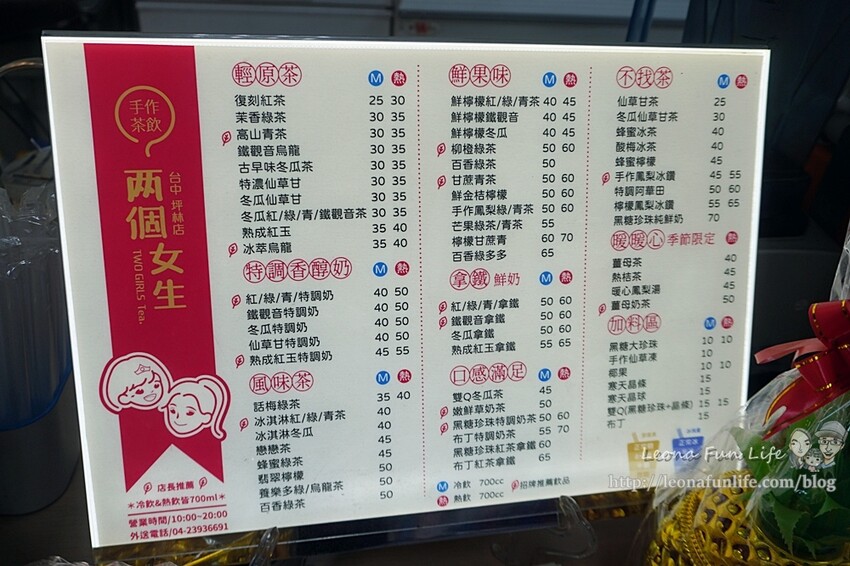 手作
茶飲
台中 坪林店
两個女生
TWO GIRLS Tea.
店長推薦
*冷飲&熱飲皆700ml*
營業時間/10:00~20:00
外送電話/04-23936691
輕原茶 M 熱
復刻紅茶 25 30
茉香綠茶 30 35
高山青茶 30 35
鐵觀音烏龍 30 35
古早味冬瓜茶 30 35
特濃仙草甘 30 35
冬瓜仙草甘 30 35
冬瓜紅/綠/青/鐵觀音茶 30 35
熟成紅玉 35 40
冰萃烏龍 35 40
特調香醇奶 M 熱
紅/綠/青/特調奶 40 50
鐵觀音特調奶 40 50
冬瓜特調奶 40 50
仙草甘特調奶 40 50
熟成紅玉特調奶 45 55
風味茶 M 熱
話梅綠茶 35 40
冰淇淋紅/綠/青茶 40
冰淇淋冬瓜 40
戀戀茶 45
蜂蜜綠茶 50
翡翠檸檬 50
養樂多綠/烏龍茶 50
百香綠茶 50
鮮果味 M 熱
鮮檸檬紅/綠/青茶 40 45
鮮檸檬鐵觀音 40 45
鮮檸檬冬瓜 40 45
柳橙綠茶 50 60
百香綠茶 50
甘蔗青茶 50 60
鮮金桔檸檬 50 60
手作鳳梨綠/青茶 50 60
芒果綠茶/青茶 55
檸檬甘蔗青 60 70
百香綠多多 65
拿鐵 鮮奶 M 熱
紅/綠/青/拿鐵 50 60
鐵觀音拿鐵 50 60
冬瓜拿鐵 50 60
熟成紅玉拿鐵 55 65
口感滿足 M 熱
雙Q冬瓜茶 45
嫩鮮草奶茶 50
黑糖珍珠特調奶茶 50 60
布丁特調奶茶 55 70
黑糖珍珠紅茶拿鐵 60
布丁紅茶拿鐵 65
M 冷飲 700cc 招牌推薦飲品
熱 熱飲 700cc
不找茶 M 熱
仙草甘茶 25
冬瓜仙草甘茶 30
蜂蜜冰茶 40
酸梅冰茶 40
蜂蜜檸檬 45
手作鳳梨冰鑽 45 55
特調阿華田 50 60
檸檬鳳梨冰鑽 55 65
黑糖珍珠純鮮奶 70
暖暖心 季節限定 熱
薑母茶 40
熱桔茶 45
暖心鳳梨湯 45
薑母奶茶 50
加料區 M 熱
黑糖大珍珠 10 10
手作仙草凍 10
椰果 10 10
寒天晶條 15
寒天晶球 15
雙Q(黑糖珍珠+晶條) 15 15
布丁 15
Leona Fun Life
http://leonafunlife.com/blog